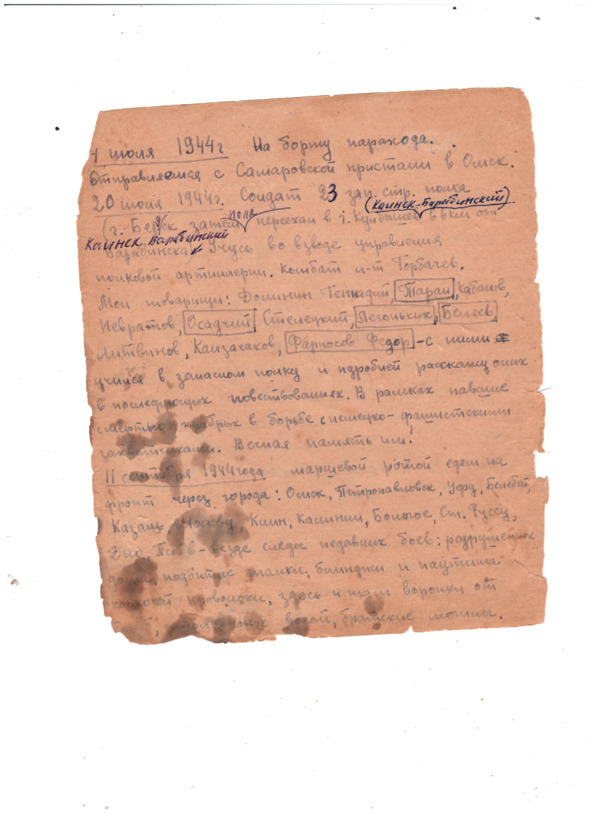 1 июля 1944г На борту парохода.
Отправляемся с Самаровской пристани в Омск.
20 июля 1944г. Солдат 23 зап. стр. полка
(Каинск-Барабинский)
(г. Бердск затем полк переехал в г. Куйбышев в км от
Каинск Барабинский
Барабинска. Учусь во взводе управления
полковой артиллерии. Комбат л-т Горбачев.
Мои товарищи: Фоминин Геннадий, Таран, Кабашов,
Невратов, Осадчий, Стелецкий, Легоньких, Беляев,
Литвинов, Канзачаков, Фарносов Федор - с ними
учимся в запасном полку и подробней расскажу о них
в последующих повествованиях. В рамках павшие
смертью храбрых в борьбе с немецко-фашистскими
захватчиками. Вечная память им.
11 сентября 1944 года маршевой ротой едем на
фронт через города: Омск, Петропавловск, Уфу, Белебей,
Казань, Москву, Клин, Калинин, Бологое, Ст. Руссу,
Псков - везде следы недавних боев: разрушенные
дома, подбитые танки, блиндажи и паутина
колючей проволоки, здесь и там воронки от
водой, братские могилы.